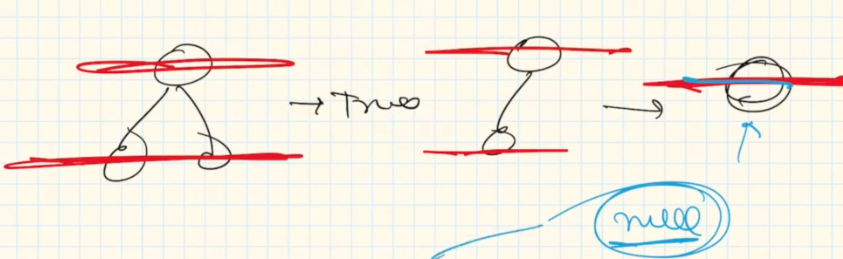 → True →
null